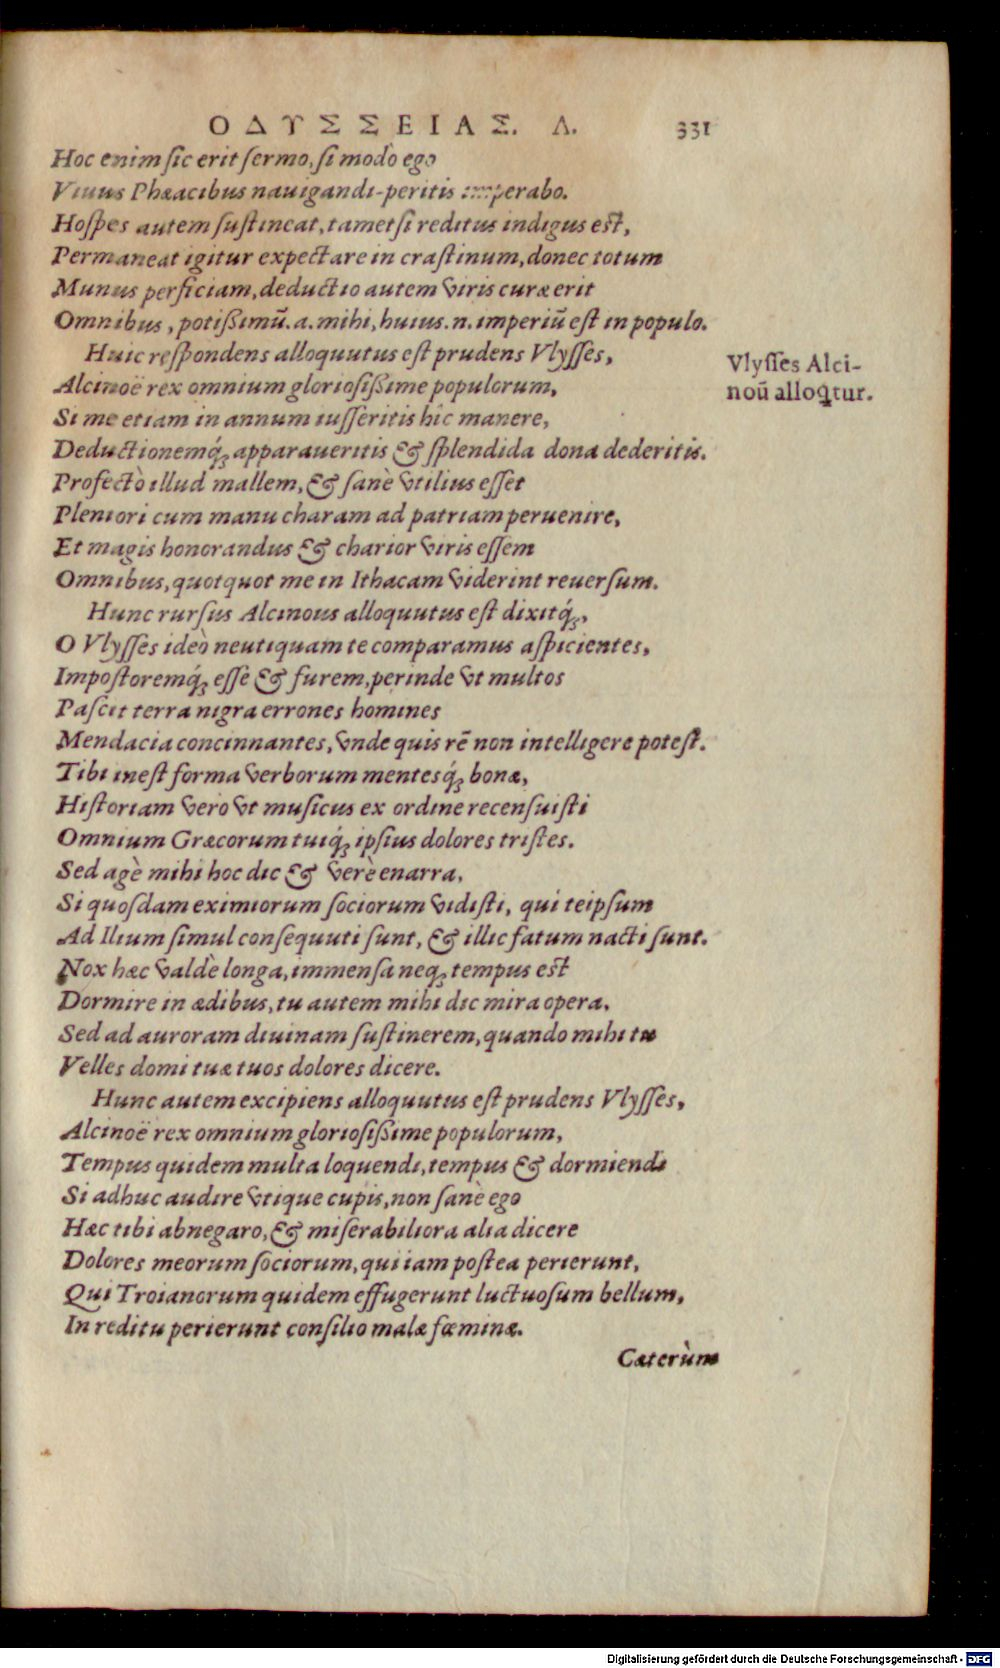 ΟΔΥΣΣΕΙΑΣ. Λ. 331
Hoc enim sic erit sermo, si modò ego
Viuus Phæacibus nauigandi-peritis imperabo.
Hospes autem sustineat, tametsi reditus indigus est,
Permaneat igitur expectare in crastinum, donec totum
Munus perficiam, deductio autem viris curæ erit
Omnibus, potißimū. a. mihi, huius. n. imperiū est in populo.
Huic respondens alloquutus est prudens Vlysses,
Alcinoë rex omnium gloriosißime populorum,
Si me etiam in annum iusseritis hic manere,
Deductionemq́; apparaueritis & splendida dona dederitis.
Profectò illud mallem, & sanè vtilius esset
Pleniori cum manu charam ad patriam peruenire,
Et magis honorandus & charior viris essem
Omnibus, quotquot me in Ithacam viderint reuersum.
Hunc rursus Alcinous alloquutus est dixitq́;,
O Vlysses ideò neutiquam te comparamus aspicientes,
Impostoremq́; esse & furem, perinde vt multos
Pascit terra nigra errones homines
Mendacia concinnantes, vnde quis rē non intelligere potest.
Tibi inest forma verborum mentesq́; bonæ,
Historiam vero vt musicus ex ordine recensuisti
Omnium Græcorum tuiq́; ipsius dolores tristes.
Sed agè mihi hoc dic & verè enarra,
Si quosdam eximiorum sociorum vidisti, qui teipsum
Ad Ilium simul consequuti sunt, & illic fatum nacti sunt.
Nox hæc valdè longa, immensa neq; tempus est
Dormire in ædibus, tu autem mihi dic mira opera.
Sed ad auroram diuinam sustinerem, quando mihi tu
Velles domi tuæ tuos dolores dicere.
Hunc autem excipiens alloquutus est prudens Vlysses,
Alcinoë rex omnium gloriosißime populorum,
Tempus quidem multa loquendi, tempus & dormiendi
Si adhuc audire vtique cupis, non sanè ego
Hæc tibi abnegaro, & miserabiliora alia dicere
Dolores meorum sociorum, qui iam postea perierunt,
Qui Troianorum quidem effugerunt luctuosum bellum,
In reditu perierunt consilio malæ fœminæ.
Cæterùm
Vlysses Alci-
noū alloqtur.
Digitalisierung gefördert durch die Deutsche Forschungsgemeinschaft - DFG